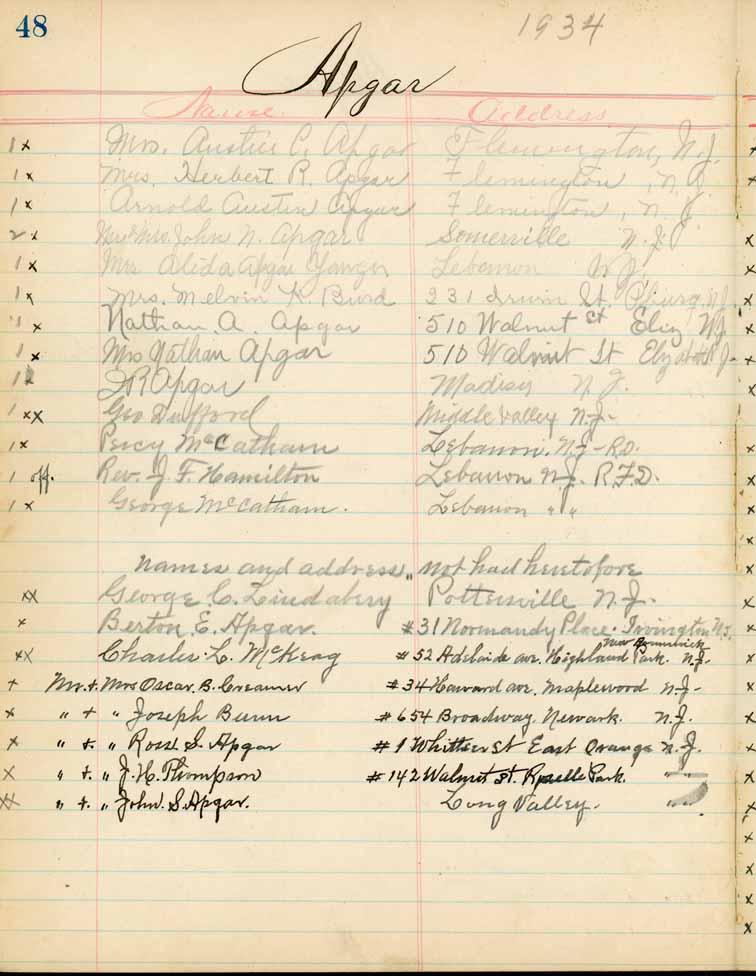 48
1934
Apgar
Name Address
1 x Mrs. Austin C. Apgar Flemington, N.J.
1 x Mrs. Herbert R. Apgar Flemington, N.J.
1 x Arnold Austin Apgar Flemington, N.J.
2 x Mrs. John N. Apgar Somerville N.J.
1 x Mrs Alida Apgar Lebanon N.J.
1 x Mrs. Melvin K. Burd 231 Irwin St. N.J.
1 x Nathan. A. Apgar 510 Walnut St Eliz N.J.
1 x Mrs Nathan Apgar 510 Walnut St N.J.
1 Apgar Madison N.J.
1 xx Geo Dufford Middle Valley N.J.
1 x Percy McCatharn Lebanon, N.J-R.D.
1 off. Rev. J. F. Hamilton Lebanon N.J. R.F.D.
1 x George McCatharn. Lebanon " "
names and address,, not had heretofore
xx George C. Lindabery Pottersville N.J.
x Berton E. Apgar. #31 Normandy Place. Irvington N.J.
New Brunswick
xx Charles. L. McKeag #52 Adelaide ave. Highland Park. N.J.
x Mr. + Mrs Oscar. B. Creamer #34 Harvard ave. Maplewood N.J.
x " + " Joseph Bunn #654 Broadway. Newark. N.J.
x " +. " Ross S. Apgar #9 Whittier St East Orange N.J.
x " +. " J. H. Thompson #142 Walnut St. Roselle Park. " "
xx " +. " John. S. Apgar. Long Valley. " "